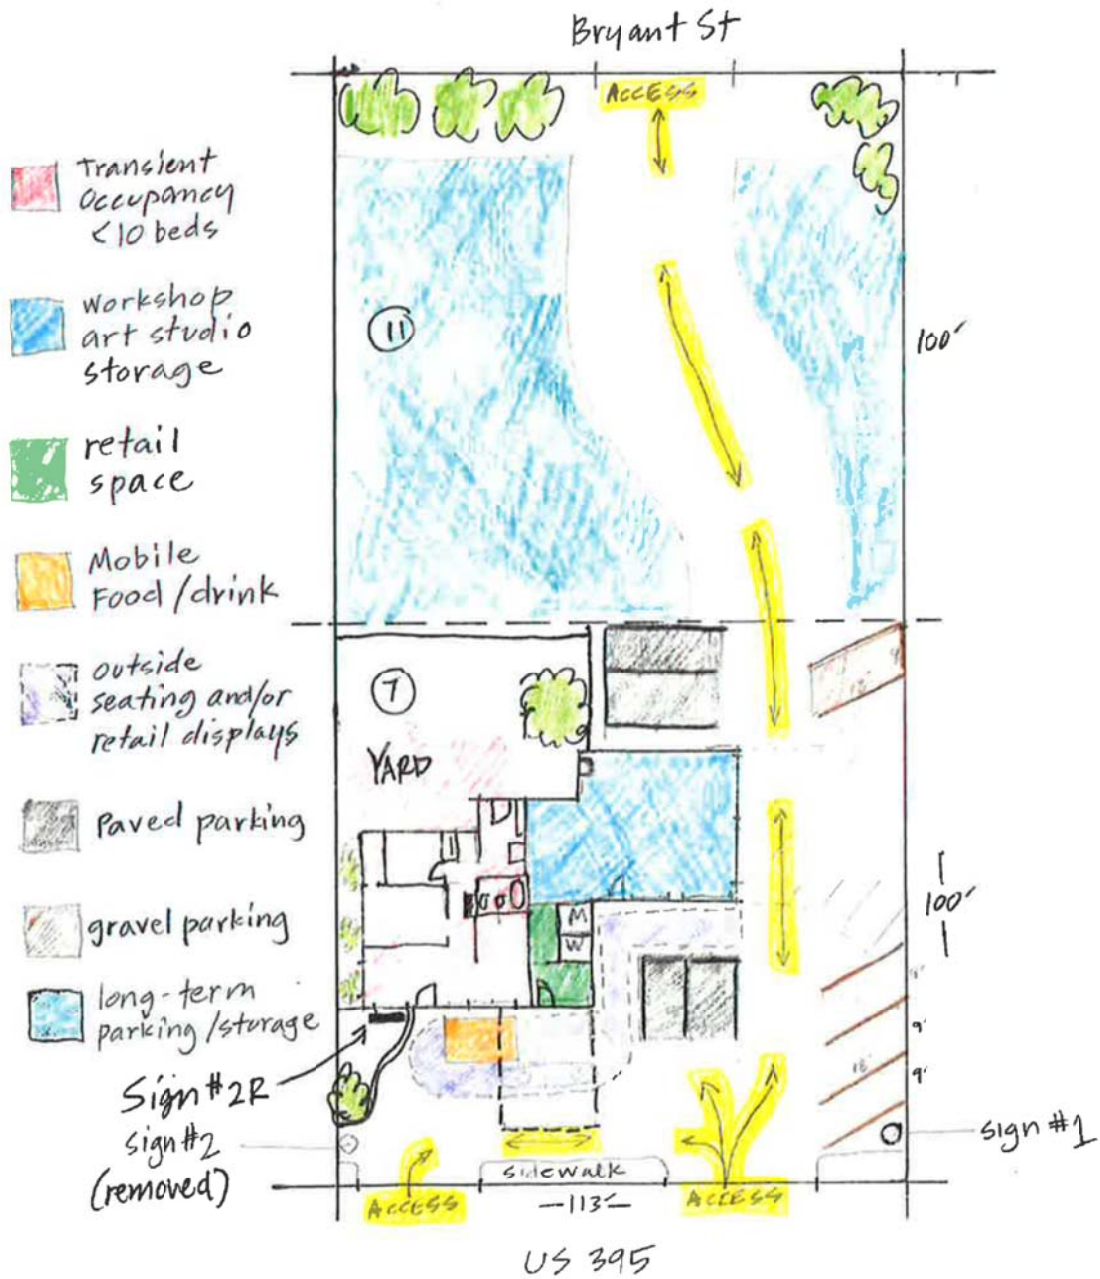 Bryant St
ACCESS
Transient
Occupancy
<10 beds
workshop
art studio
storage
retail
space
Mobile
Food/drink
outside
seating and/or
retail displays
Paved parking
gravel parking
long-term
parking/storage
11
100'
7
YARD
18'
M
W
100'
9'
9'
9'
18'
Sign #2R
sign #2
(removed)
sign #1
sidewalk
ACCESS
—113'—
ACCESS
US 395